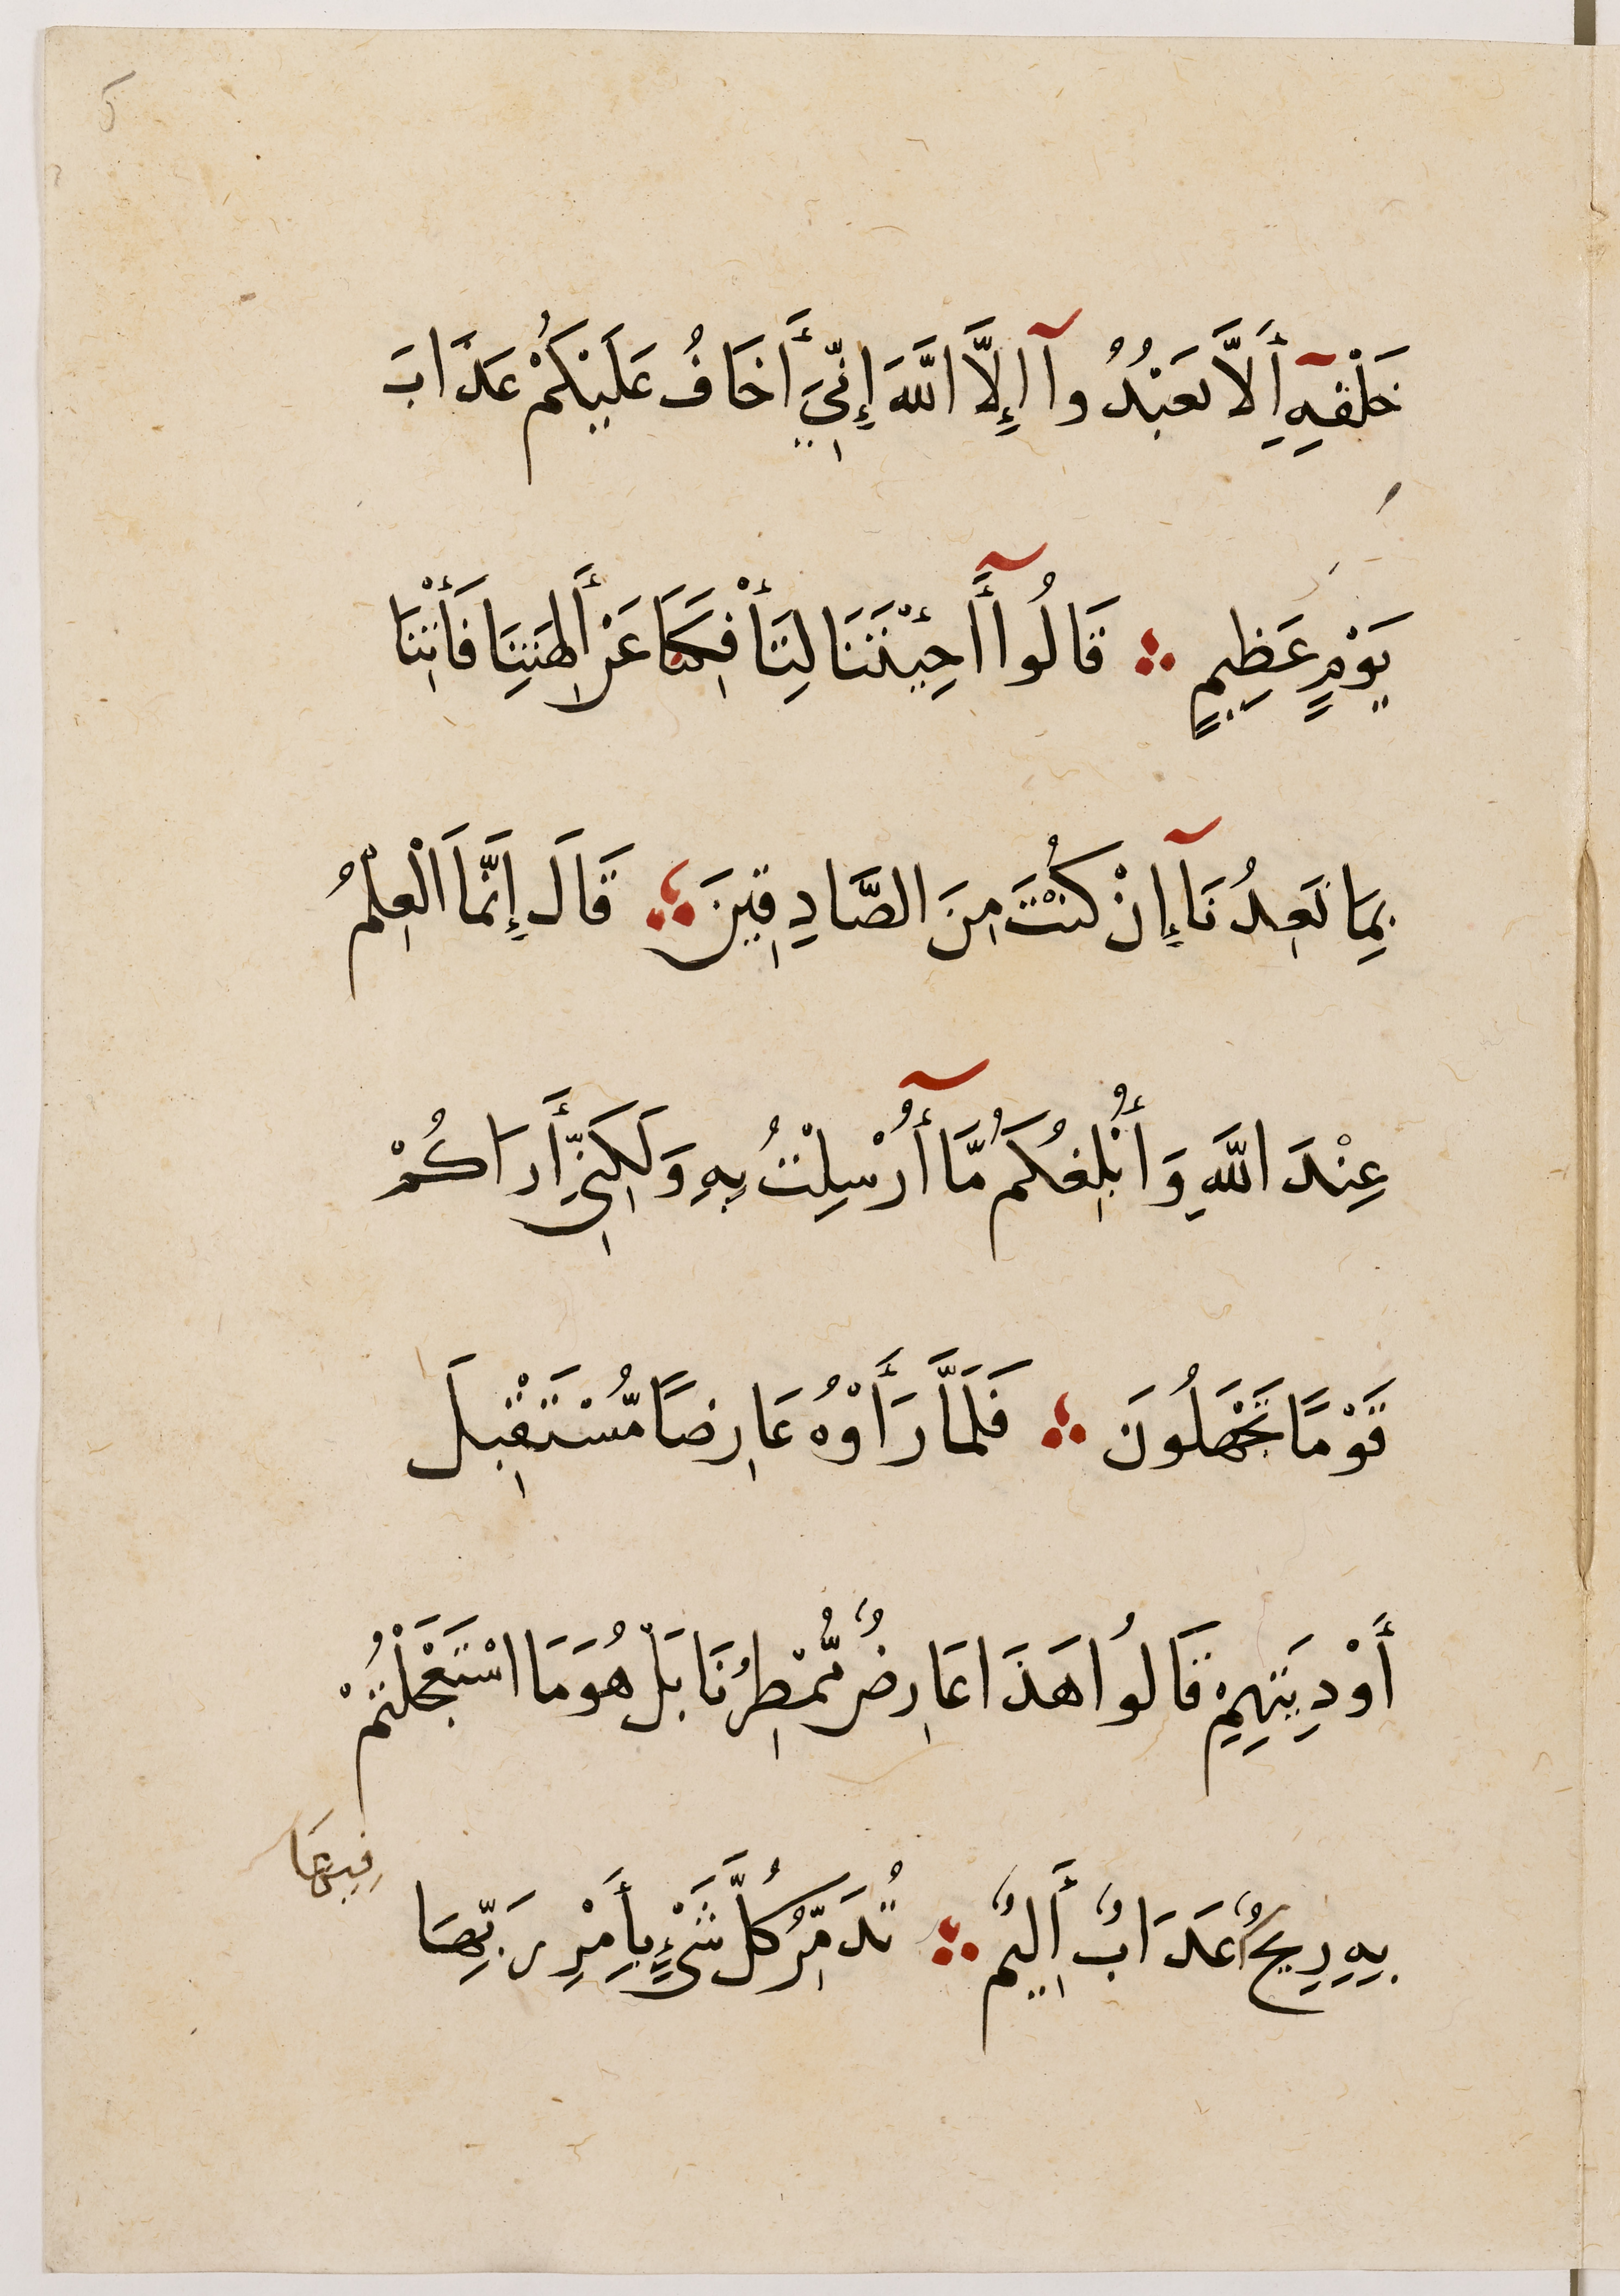 خَلْفِهِ أَلَّا تَعْبُدُوآ إِلَّا اللَّهَ إِنِّيَ أَخَافُ عَلَيْكُمْ عَذَابَ
يَوْمٍ عَظِيمٍ ۞ قَالُوآ أَجِئْتَنَا لِتَأْفِكَنَا عَنْ أَلِهَتِنَا فَأْتِنَا
بِمَا تَعِدُنَآ إِنْ كُنْتَ مِنَ الصَّادِقِينَ ۞ قَالَ إِنَّمَا الْعِلْمُ
عِنْدَ اللَّهِ وَأُبْلِغُكُمُ مَّآ أُرْسِلْتُ بِهِ وَلَكِنِّيَ أَرَاكُمْ
قَوْمًا تَجْهَلُونَ ۞ فَلَمَّا رَأَوْهُ عَارِضًا مُّسْتَقْبِلَ
أَوْدِيَتِهِمْ قَالُوا هَذَا عَارِضٌ مُّمْطِرُنَا بَلْ هُوَ مَا اسْتَعْجَلْتُمْ
بِهِ رِيحٌ عَذَابٌ أَلِيمٌ ۞ تُدَمِّرُ كُلَّ شَيْءٍ بِأَمْرِ رَبِّهَا
فِيهَا